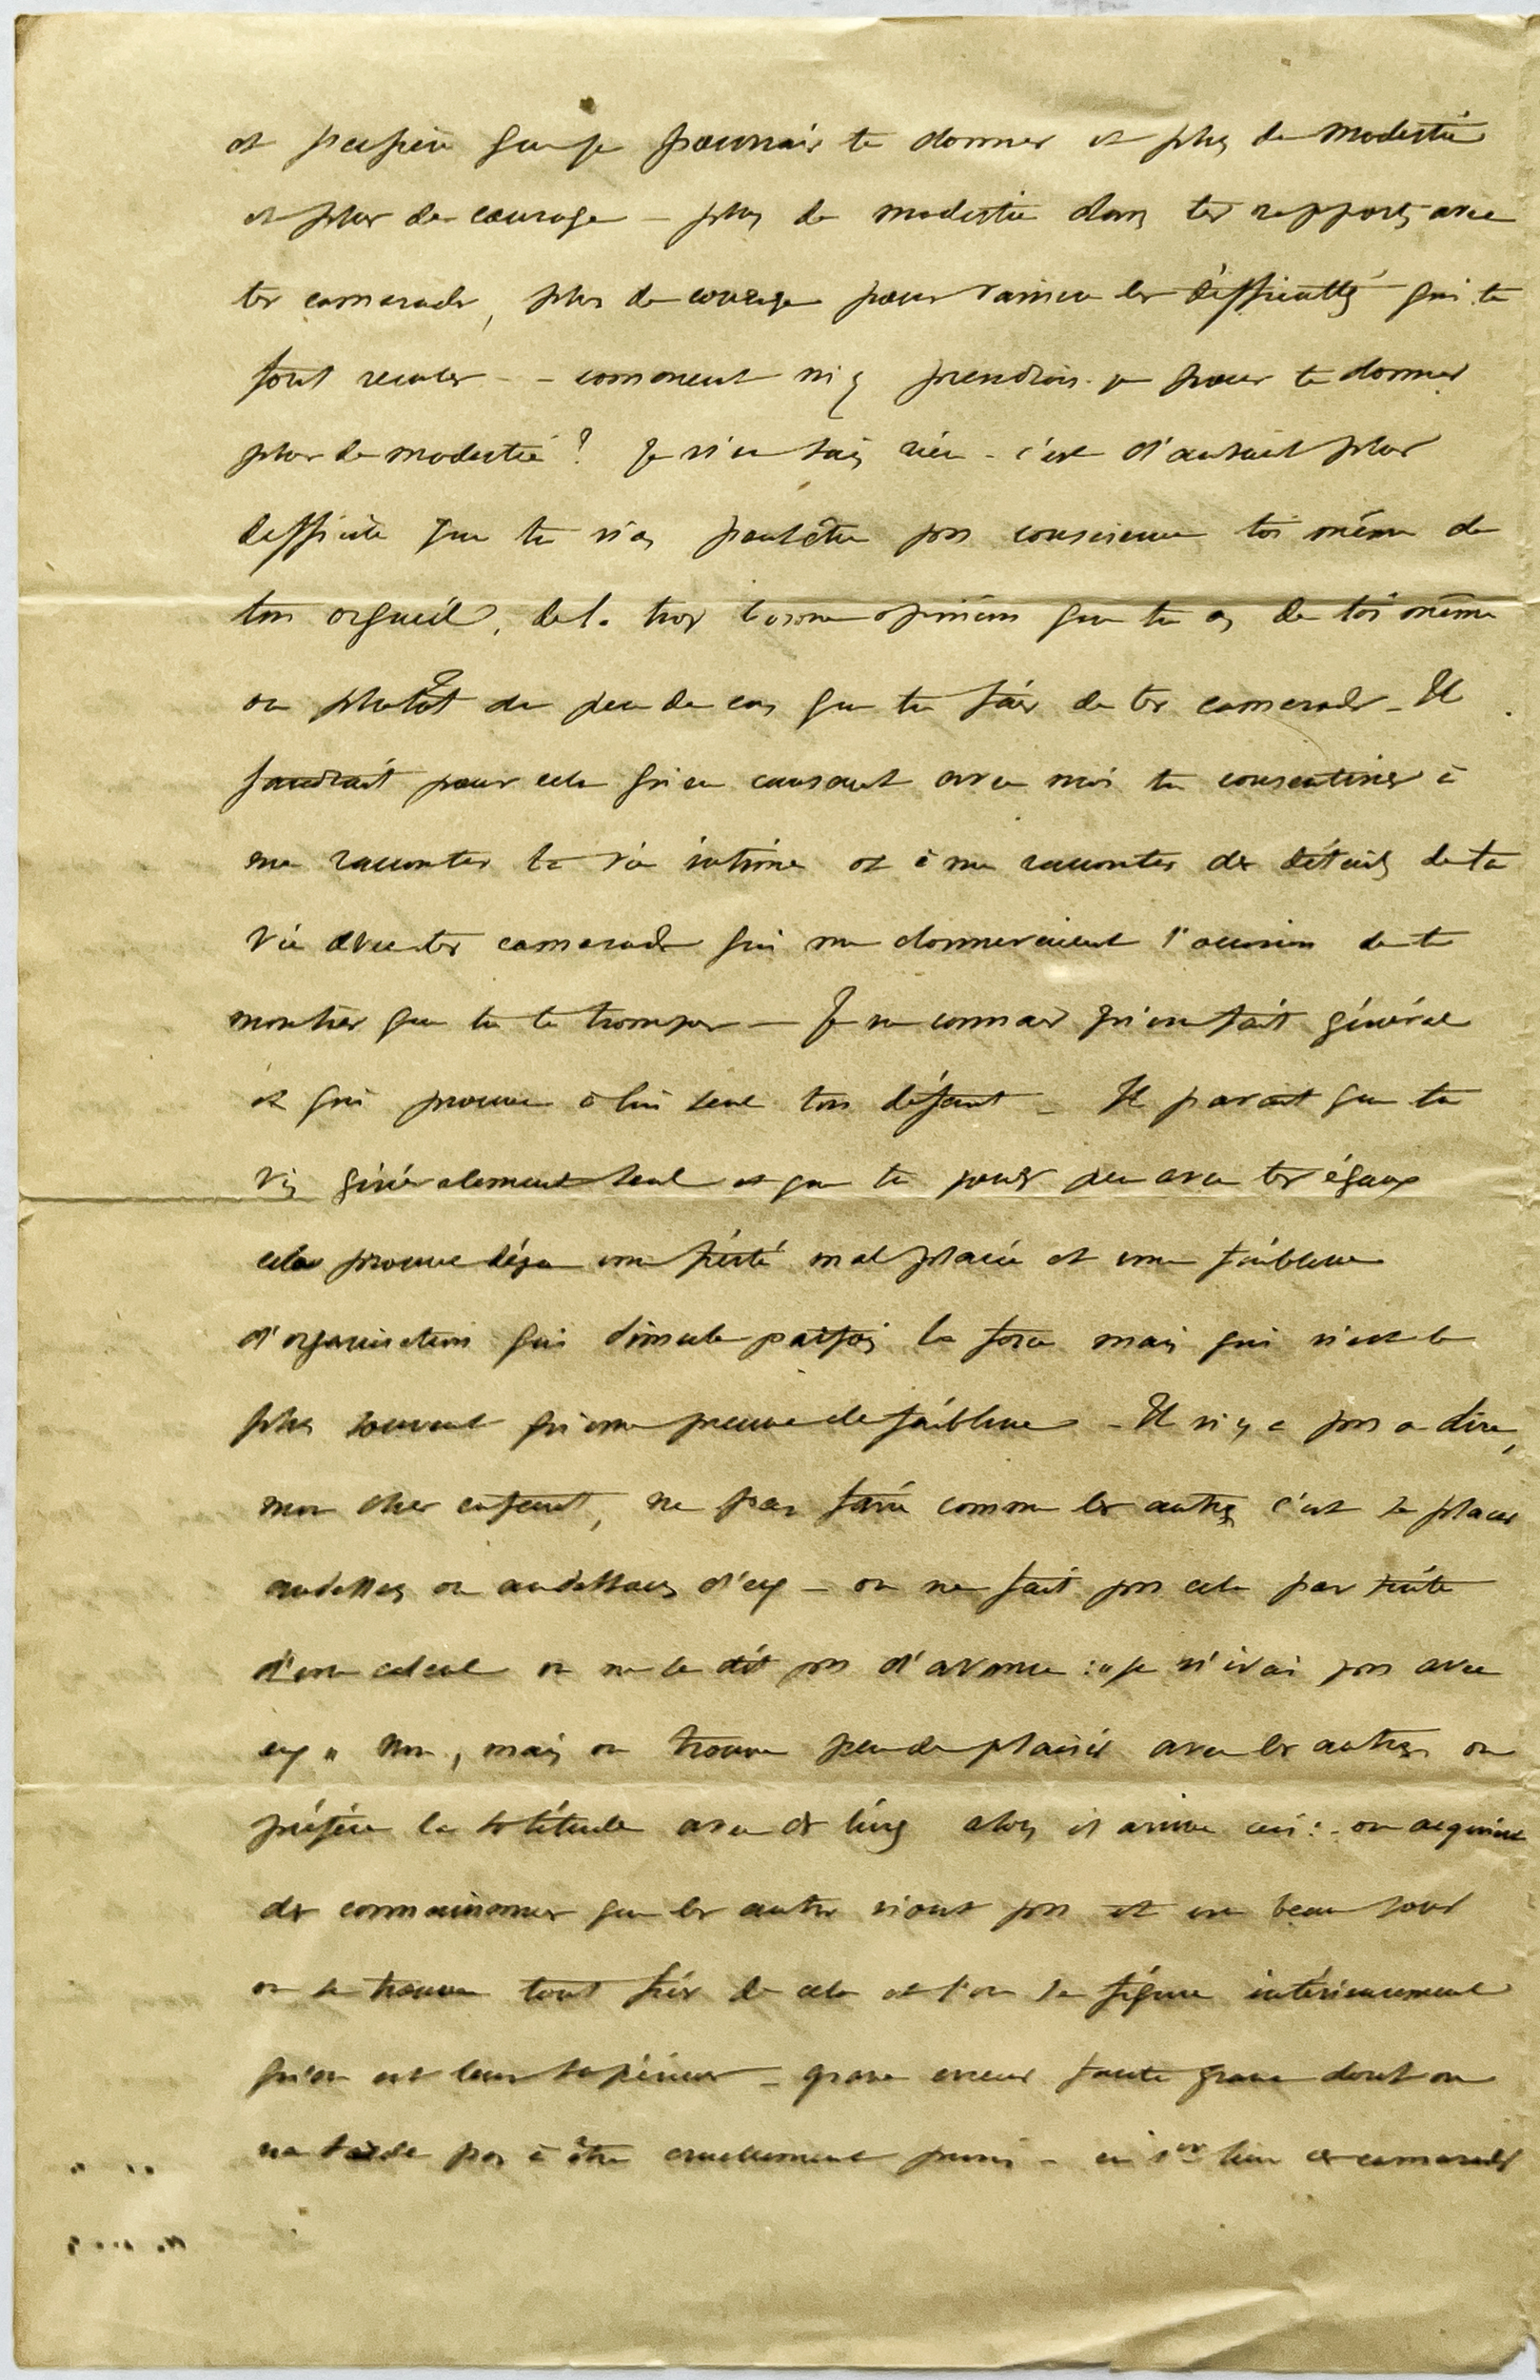 et j'espère que je pourrais te donner et plus de modestie
et plus de courage — plus de modestie dans tes rapports avec
tes camarades, plus de courage pour vaincre les difficultés qui te
font reculer - - comment m'y prendrais-je pour te donner
plus de modestie ? Je n'en sais rien - c'est d'autant plus
difficile que tu n'as peut être pas conscience toi même de
ton orgueil, de la trop bonne opinion que tu as de toi même
ou plutôt du peu de cas que tu fais de tes camarades - Il
faudrait pour cela qu'en causant avec moi tu consentisses à
me raconter ta vie intime et à me raconter des détails de ta
vie avec tes camarades qui me donneraient l'occasion de te
montrer que tu te trompes — Je ne connais qu'un fait général
et qui prouve à lui seul ton défaut - Il parait que tu
vis généralement seul et que tu joues peu avec tes égaux
cela prouve déja une fierté mal placée et une faiblesse
d'organisation qui simule parfois la force mais qui n'est le
plus souvent qu'une preuve de faiblesse - Il n'y a pas a dire,
mon cher enfant, ne pas faire comme les autres c'est se placer
audessus ou audessous d'eux — on ne fait pas cela par suite
d'un calcul on ne se dit pas d'avance : "je n'irai pas avec
eux" Non, mais on trouve peu de plaisir avec les autres on
préfère la solitude avec des livres alors il arrive ceci : - on acquiert
des connaissances que les autres n'ont pas et un beau jour
on se trouve tout fier de cela et l'on se figure intérieurement
qu'on est leur supérieur - grave erreur faute grave dont on
ne tarde pas à être cruellement puni - en 1er lieu ces camarades